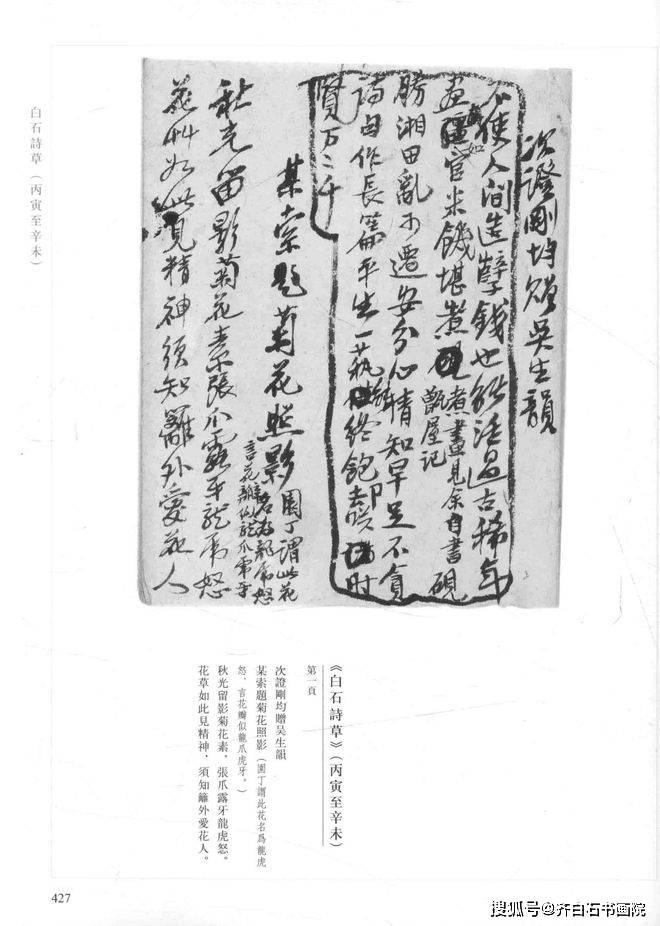 白石詩草（丙寅至辛未）
次證剛均贈吳生韻
不使人間造孽錢也能活過古稀年
畫官米饑堪煮
者畫見余自書硯
甑屋記
勝湘田亂不遷安分心情知早足不貪
詩句作長篇平生一藝終飽去時
賢万二千
某索題菊花照影
園丁謂此花
名為龍虎怒
言花瓣似龍爪虎牙
秋光留影菊花素張爪露牙龍虎怒
花草如此見精神須知籬外愛花人
《白石詩草》（丙寅至辛未）
第一頁
次證剛均贈吴生韻
某索題菊花照影（園丁謂此花名爲龍虎
怒，言花瓣似龍爪虎牙。）
秋光留影菊花素，張爪露牙龍虎怒。
花草如此見精神，須知籬外愛花人。
427
搜狐号@齐白石书画院